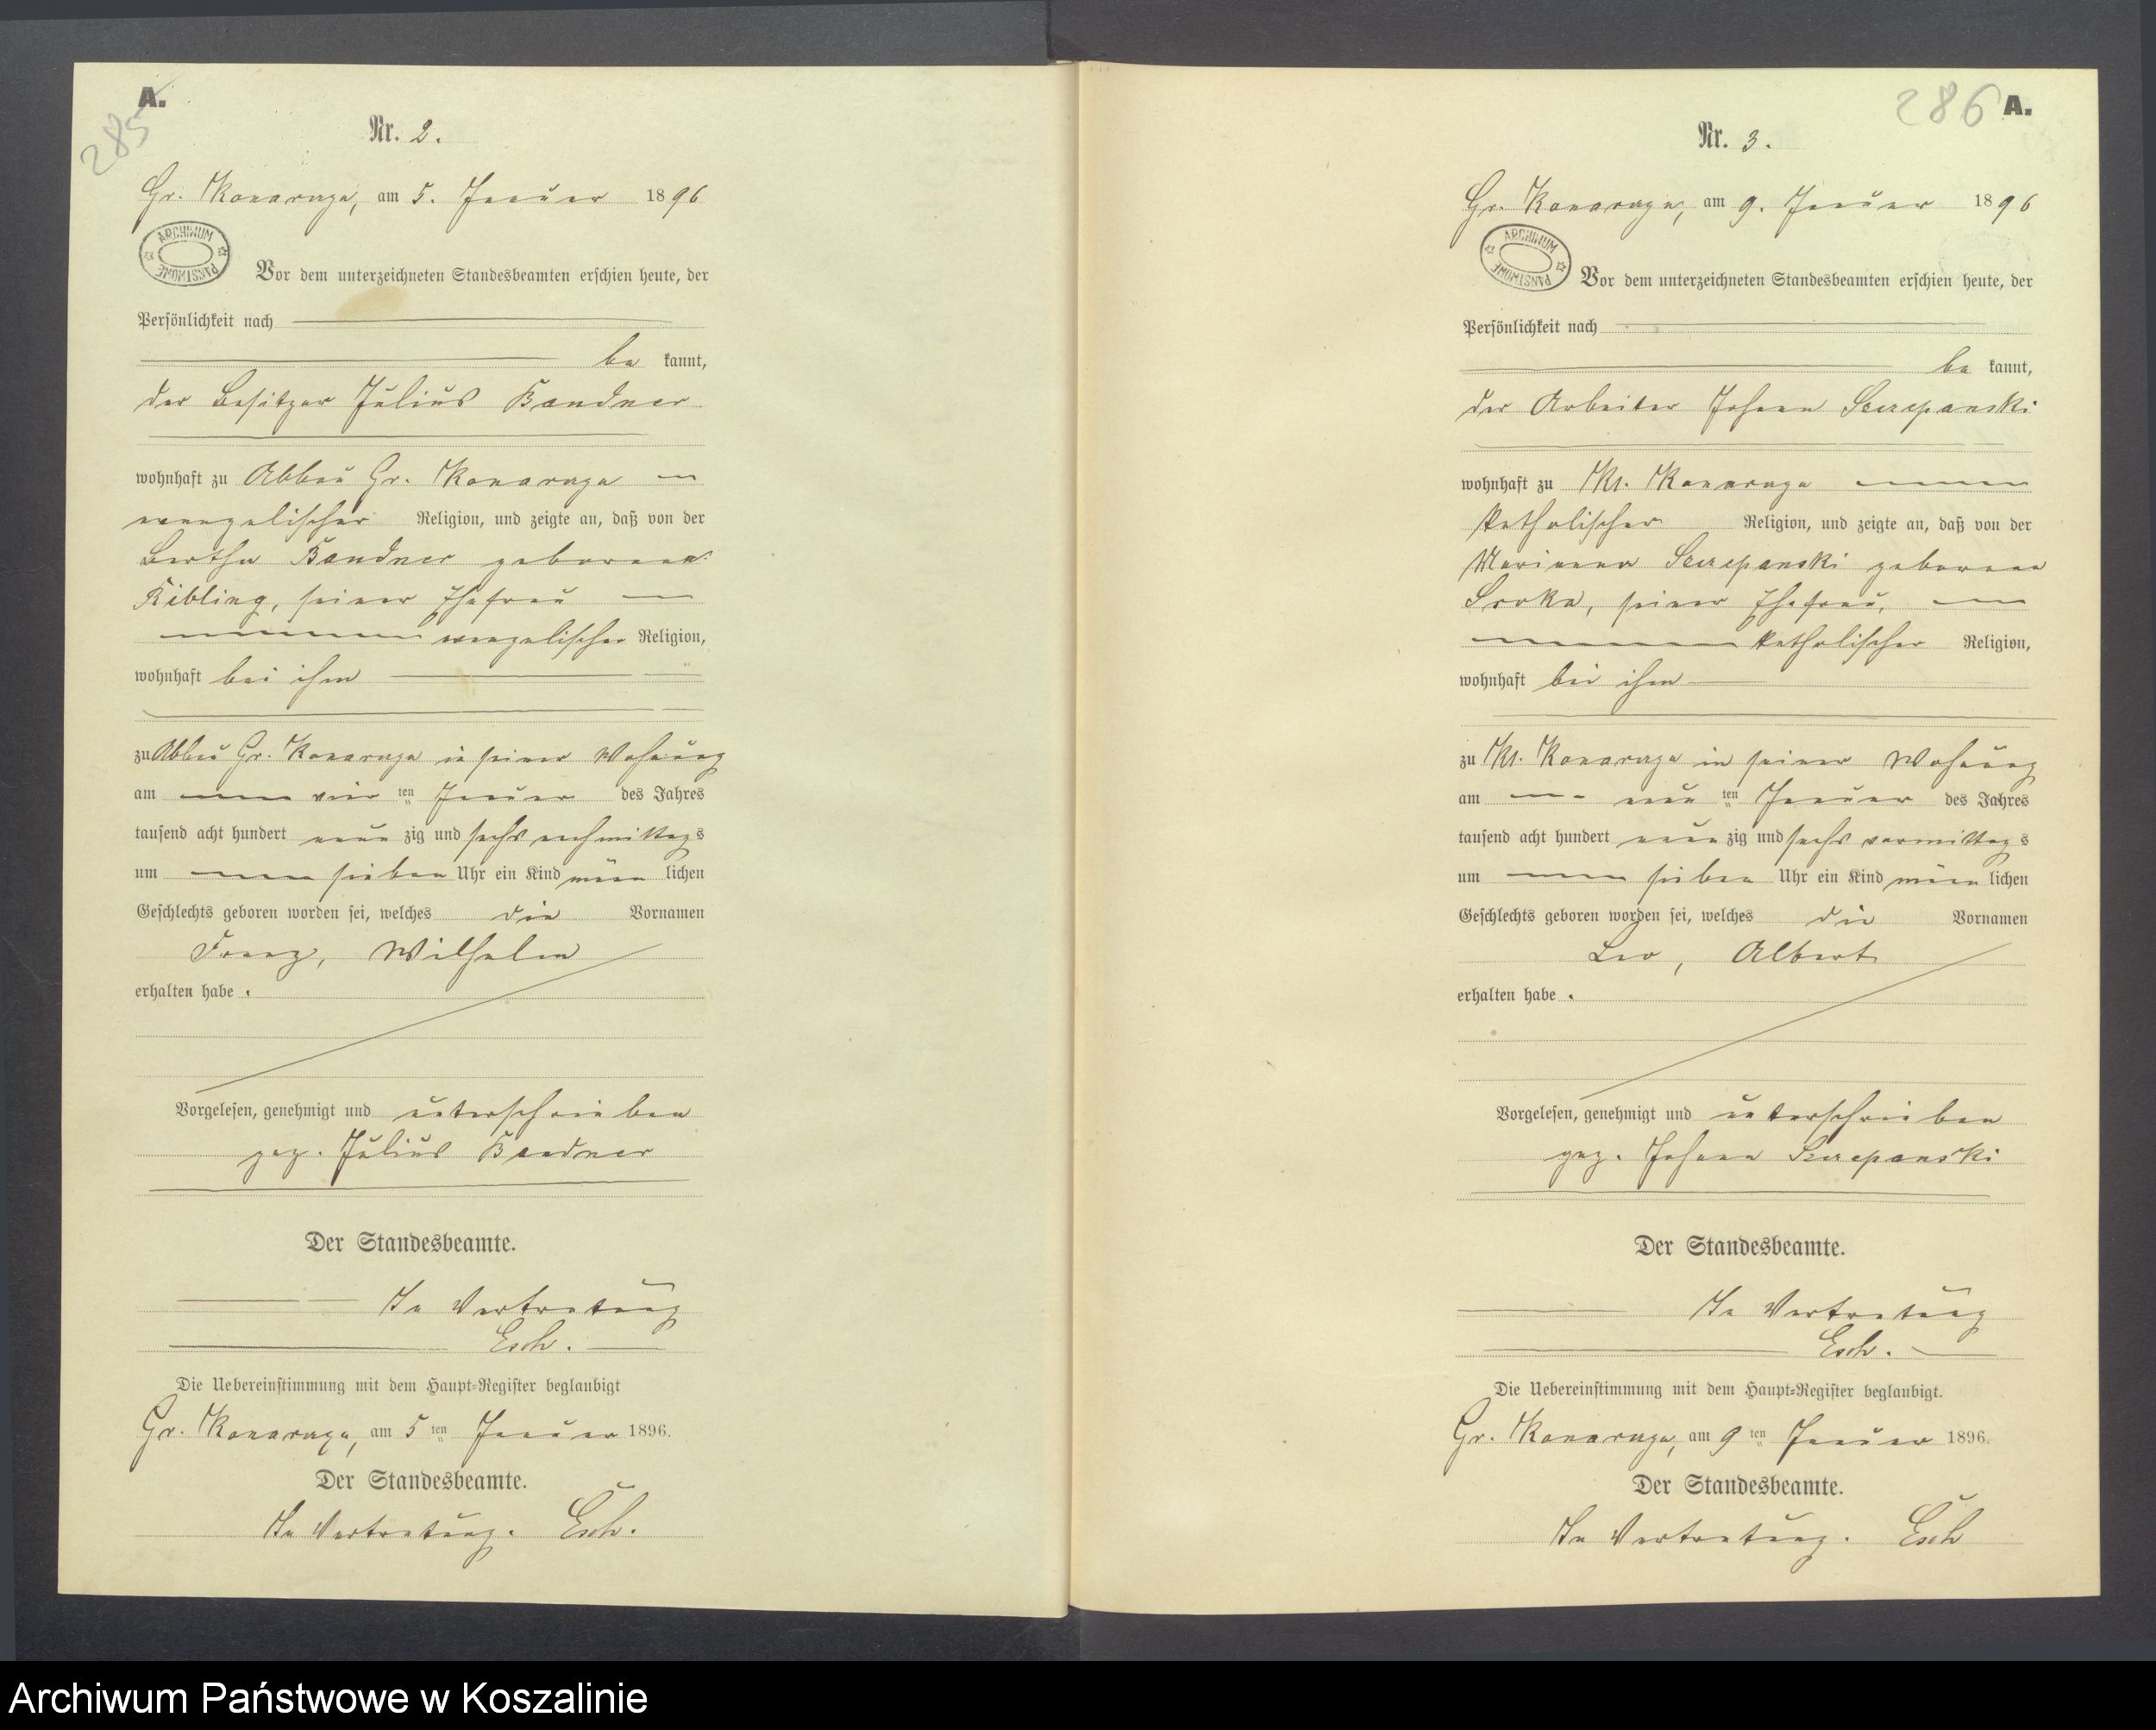 A.
285
Nr. 2.
Gr. Konarczyn, am 5. Januar 1896
ARCHIWUM PAŃSTWOWE
Vor dem unterzeichneten Standesbeamten erschien heute, der
Persönlichkeit nach
be kannt,
der Besitzer Julius Bandner
wohnhaft zu Abbau Gr. Konarczyn
evangelischer Religion, und zeigte an, daß von der
Bertha Bandner geborenen
Ribling, seiner Ehefrau
evangelischer Religion,
wohnhaft bei ihm
zu Abbau Gr. Konarczyn in seiner Wohnung
am vier ten Januar des Jahres
tausend acht hundert neun zig und sechs nachmittags
um sieben Uhr ein Kind männ lichen
Geschlechts geboren worden sei, welches die Vornamen
Franz, Wilhelm
erhalten habe.
Vorgelesen, genehmigt und unterschrieben
gez. Julius Bandner
Der Standesbeamte.
In Vertretung
Esch.
Die Uebereinstimmung mit dem Haupt-Register beglaubigt
Gr. Konarczyn, am 5 ten Januar 1896.
Der Standesbeamte.
In Vertretung. Esch.
286 A.
Nr. 3.
Gr. Konarczyn, am 9. Januar 1896
ARCHIWUM PAŃSTWOWE
Vor dem unterzeichneten Standesbeamten erschien heute, der
Persönlichkeit nach
be kannt,
der Arbeiter Johann Szczepanski
wohnhaft zu Kl. Konarczyn
katholischer Religion, und zeigte an, daß von der
Marianna Szczepanski geborenen
Sroka, seiner Ehefrau,
katholischer Religion,
wohnhaft bei ihm
zu Kl. Konarczyn in seiner Wohnung
am neun ten Januar des Jahres
tausend acht hundert neun zig und sechs vormittags
um sieben Uhr ein Kind männ lichen
Geschlechts geboren worden sei, welches die Vornamen
Leo, Albert
erhalten habe.
Vorgelesen, genehmigt und unterschrieben
gez. Johann Szczepanski
Der Standesbeamte.
In Vertretung
Esch.
Die Uebereinstimmung mit dem Haupt-Register beglaubigt.
Gr. Konarczyn, am 9 ten Januar 1896.
Der Standesbeamte.
In Vertretung. Esch
Archiwum Państwowe w Koszalinie